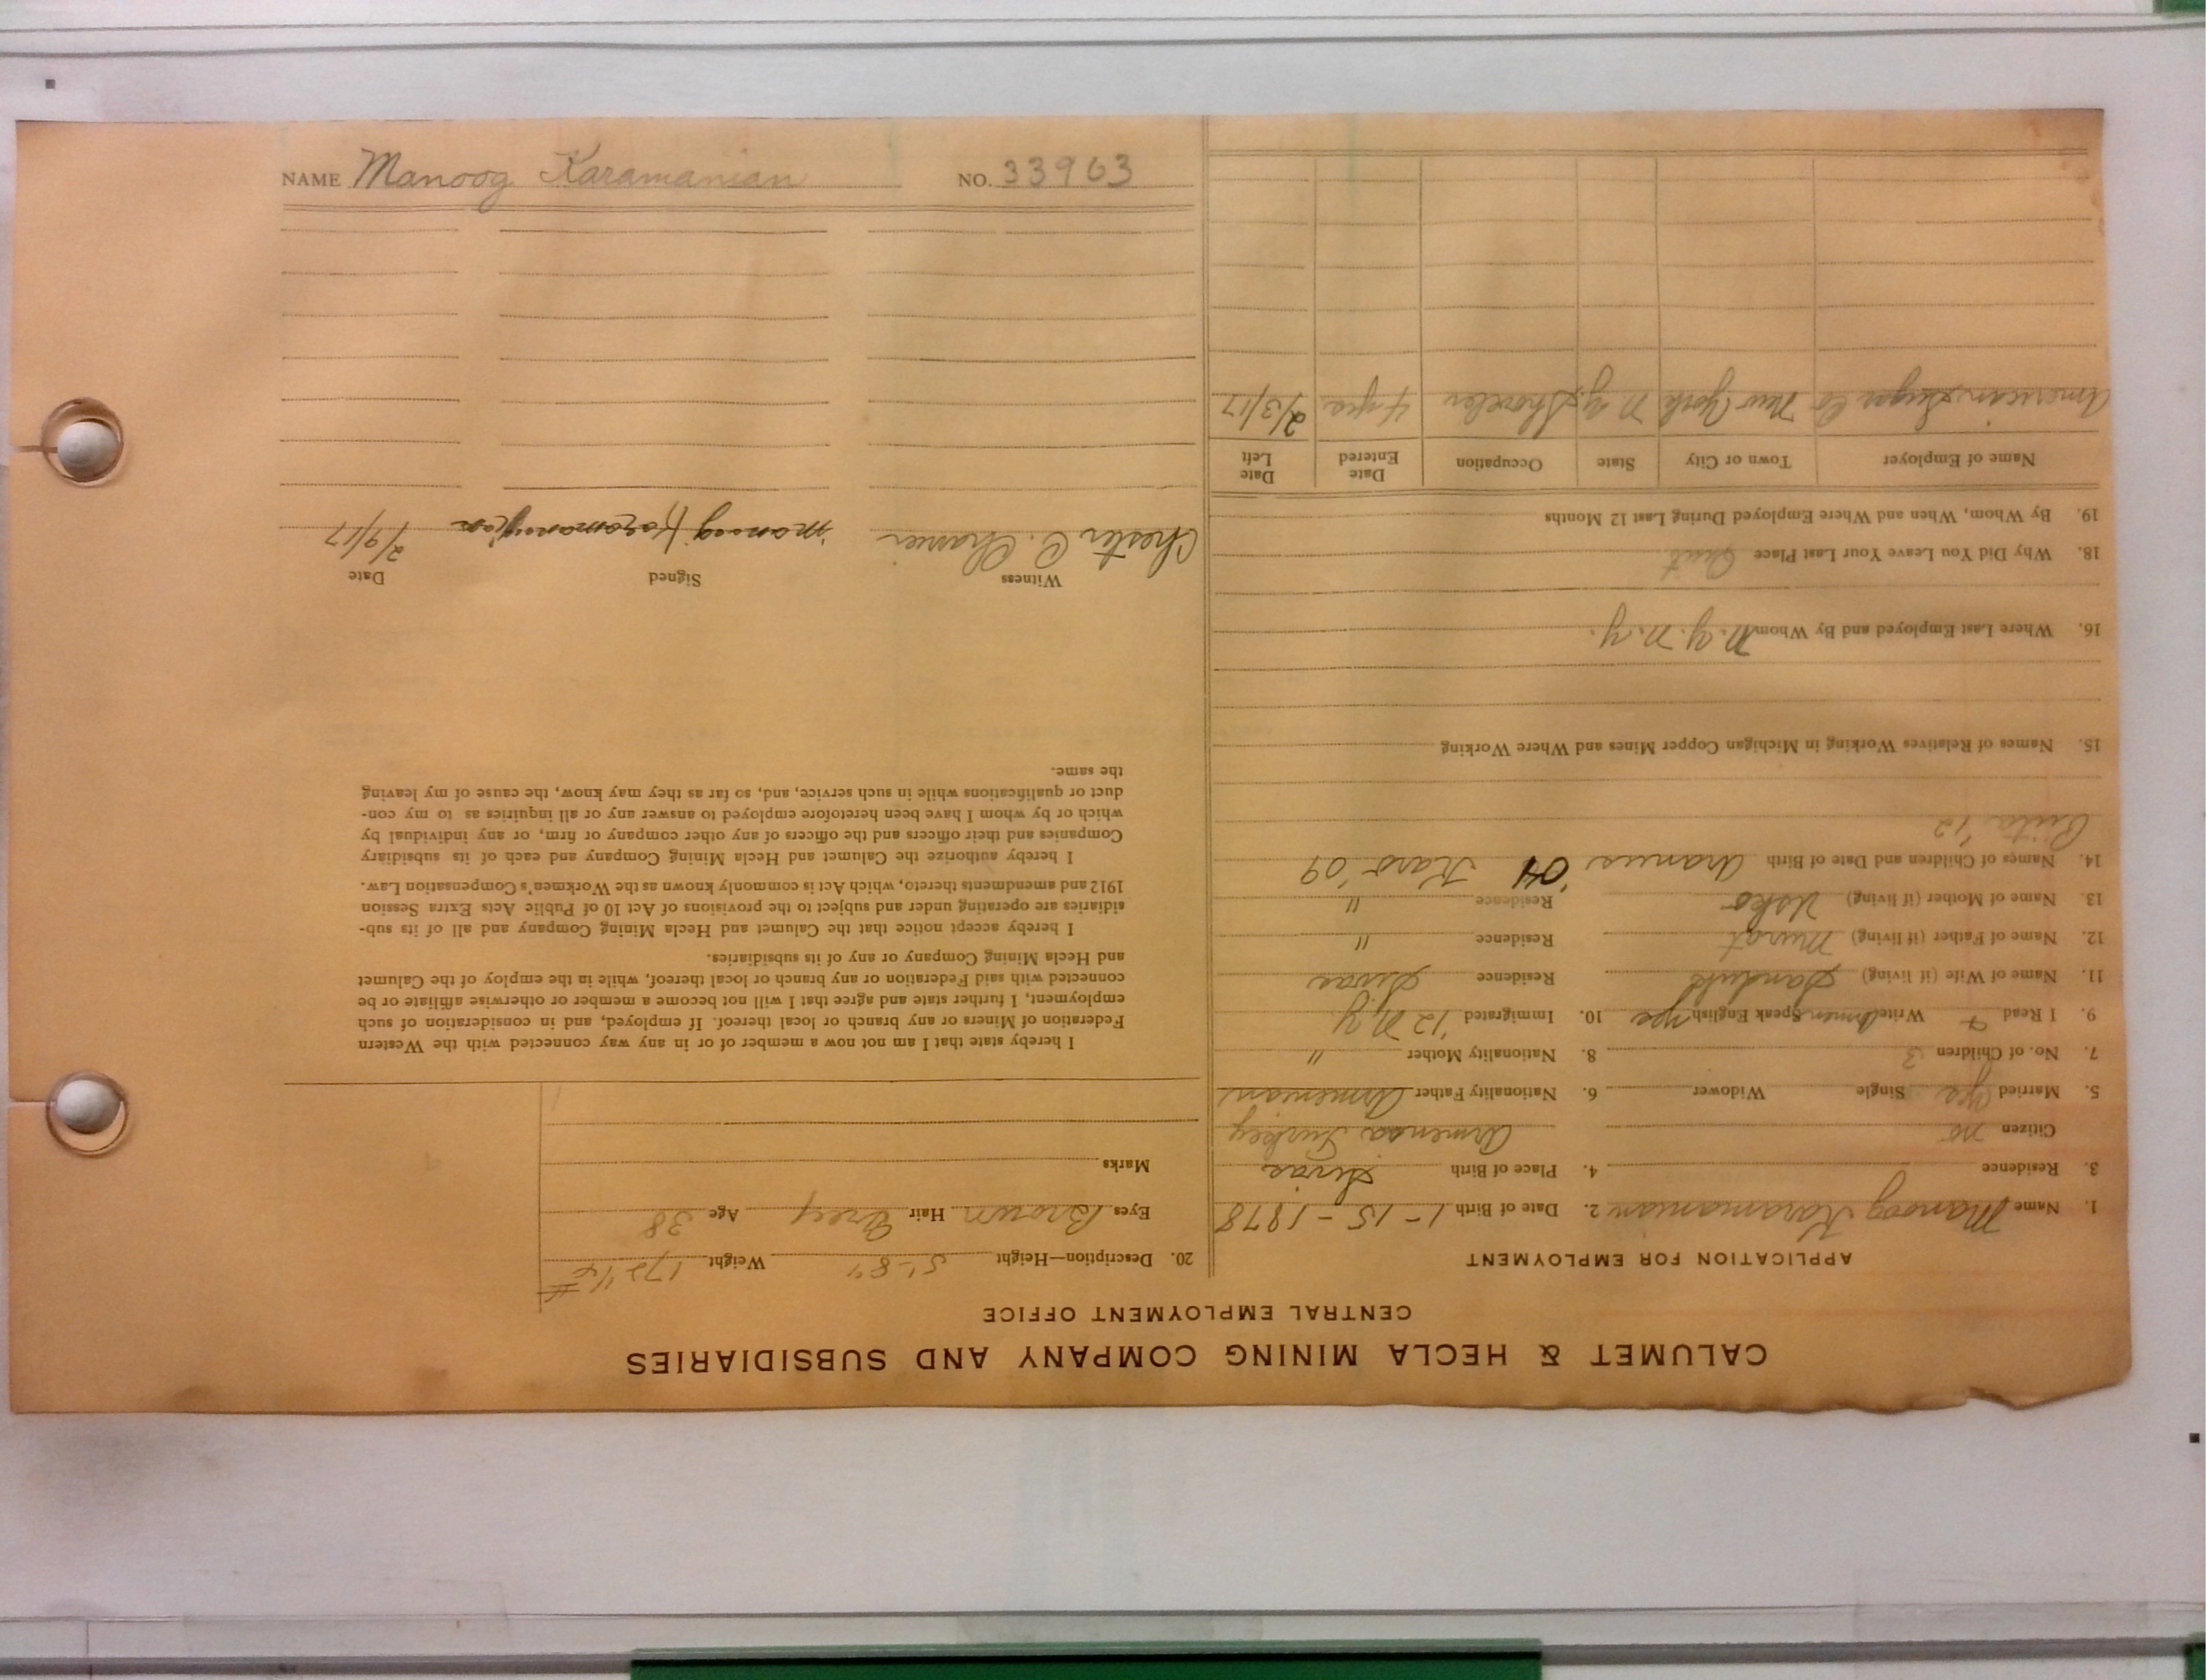 NAME Manoog Karamanian NO. 33963
CALUMET & HECLA MINING COMPANY AND SUBSIDIARIES
CENTRAL EMPLOYMENT OFFICE
APPLICATION FOR EMPLOYMENT
1. Name Manoog Karamanian 2. Date of Birth 1-15-1878
3. Residence 4. Place of Birth Sivas
Citizen no Armenia Turkey
5. Married yes Single Widower 6. Nationality Father Armenian
7. No. of Children 3 8. Nationality Mother "
9. I Read + Write Armen Speak English yes 10. Immigrated '12 N.Y
11. Name of Wife (if living) Residence Sivas
12. Name of Father (if living) Murat Residence "
13. Name of Mother (if living) Usko Residence "
14. Names of Children and Date of Birth Aranus '04 Karo '09
'12
15. Names of Relatives Working in Michigan Copper Mines and Where Working
16. Where Last Employed and By Whom N.Y. N.Y.
18. Why Did You Leave Your Last Place Quit
19. By Whom, When and Where Employed During Last 12 Months
Name of Employer Town or City State Occupation Date Entered Date Left
American Sugar Co New York N.Y. Shoveler 4 yrs 2/3/17
20. Description—Height 5'-8" Weight 172 1/2 #
Eyes Brown Hair Grey Age 38
Marks
I hereby state that I am not now a member of or in any way connected with the Western
Federation of Miners or any branch or local thereof. If employed, and in consideration of such
employment, I further state and agree that I will not become a member or otherwise affiliate or be
connected with said Federation or any branch or local thereof, while in the employ of the Calumet
and Hecla Mining Company or any of its subsidiaries.
I hereby accept notice that the Calumet and Hecla Mining Company and all of its sub-
sidiaries are operating under and subject to the provisions of Act 10 of Public Acts Extra Session
1912 and amendments thereto, which Act is commonly known as the Workmen's Compensation Law.
I hereby authorize the Calumet and Hecla Mining Company and each of its subsidiary
Companies and their officers and the officers of any other company or firm, or any individual by
which or by whom I have been heretofore employed to answer any or all inquiries as to my con-
duct or qualifications while in such service, and, so far as they may know, the cause of my leaving
the same.
Witness Signed Date
Chester C. manoog Karamanyian 2/9/17